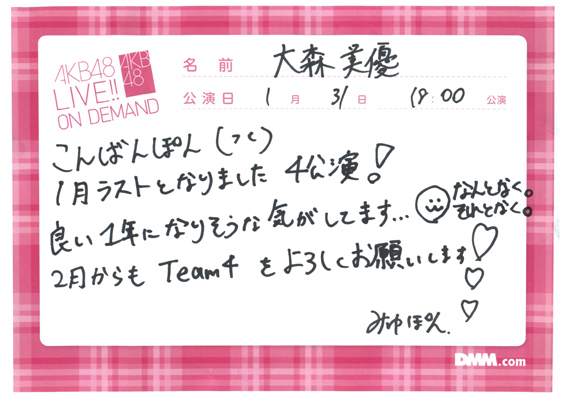 AKB48
LIVE!!
ON DEMAND
AKB
48
名前 大森美優
公演日 1月 31日 18:00 公演
こんばんぽん(つc)
1月ラストとなりました 4公演!
良い1年になりそうな気がしてます...
なんとなく。
それとなく。
2月からも Team4 をよろしくお願いします♡♡♡
みゆぽん.
DMM.com